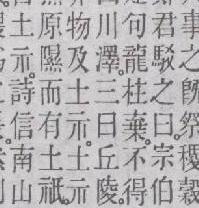 事之所祭稷穀
君駁之曰宗伯
句龍柱棄不得
川澤三曰丘陵
物及土示土示
原隰而有土祇
土示詩信南山